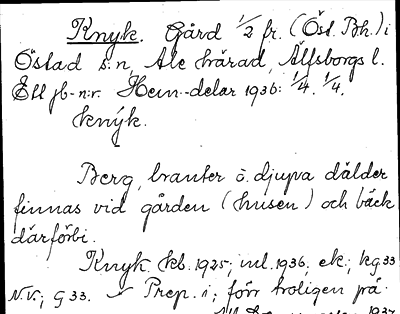 Knyk. Gård 1/2 fr. (Öst. Bh.) i
Östad s:n, Ale härad, Älfsborgs l.
Ett jb-n:r. Hem-delar 1936: 1/4. 1/4.
knýk.
Berg, branter o. djupa dälder
finnas vid gården (husen) och bäck
därförbi.
Knyk kb. 1925; inl. 1936, ek; kg 33
N.V.; G 33. Prep. i; förr troligen på.
1937